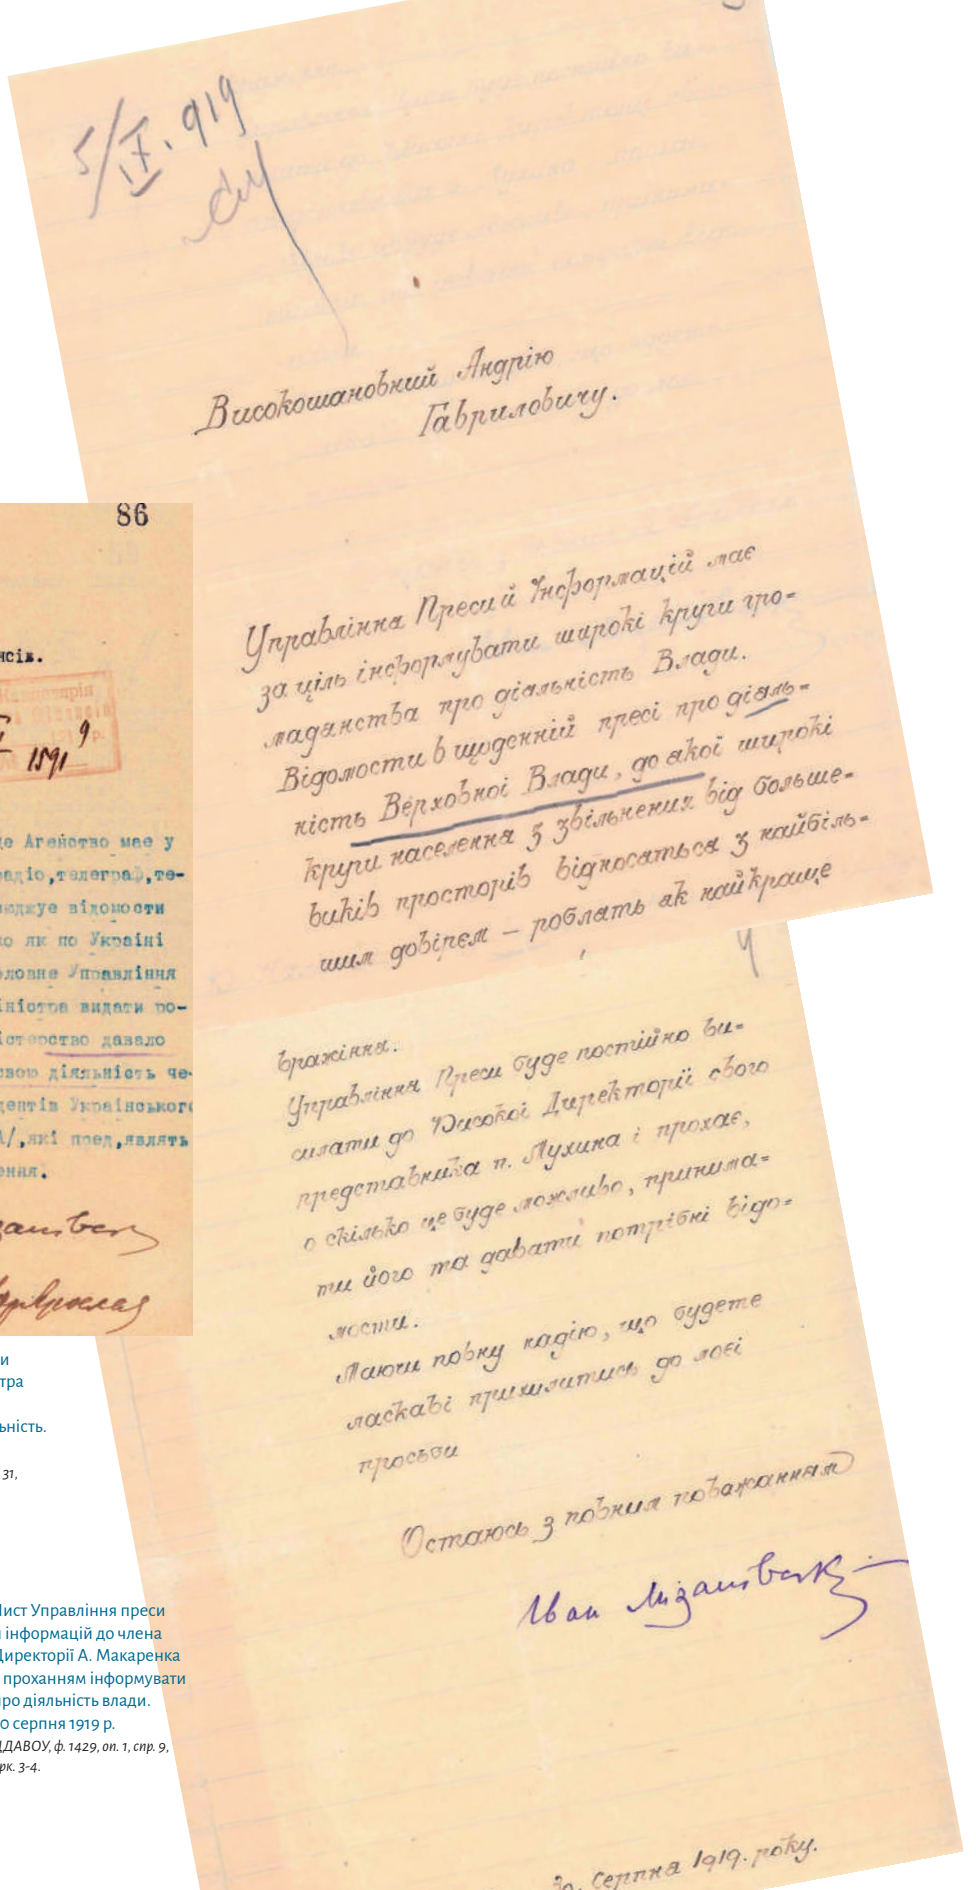 5/IX. 919
Високошановний Андрію
Гавриловичу.
Управлінна Преси й Інформацій має
за ціль інформувати широкі круги гро-
маданства про діальність Влади.
Відомости в щоденній пресі про діаль-
ність Верховноі Влади, до акої широкі
круги населенна з звільнених від больше-
виків просторів відносатьса з найбіль-
шим довірєм — роблать ак найкраще
4
вражінна.
Управлінна Преси буде постійно ви-
силати до Високоі Директоріі свого
представника п. Мухина і прохає,
о скілько це буде можливо, принима-
ти його та давати потрібні відо-
мости.
Маючи повну надію, що будете
ласкаві прихилитись до моєі
просьби
Остаюсь з повним поважаннам
Іван Мізановськ
30. Серпна 1919. року.
86
нсів.
1591 9
це Агенство має у
радіо,телеграф,те-
юджує відомости
ко як по Україні
оловне Управління
іністра видати ро-
істерство давало
свою діяльність че-
дентів Українського
А/,які пред,являть
ення.
и
тра
ьність.
31,
Лист Управління преси
й інформацій до члена
Директорії А. Макаренка
з проханням інформувати
про діяльність влади.
30 серпня 1919 р.
ЦДАВОУ, ф. 1429, оп. 1, спр. 9,
арк. 3-4.